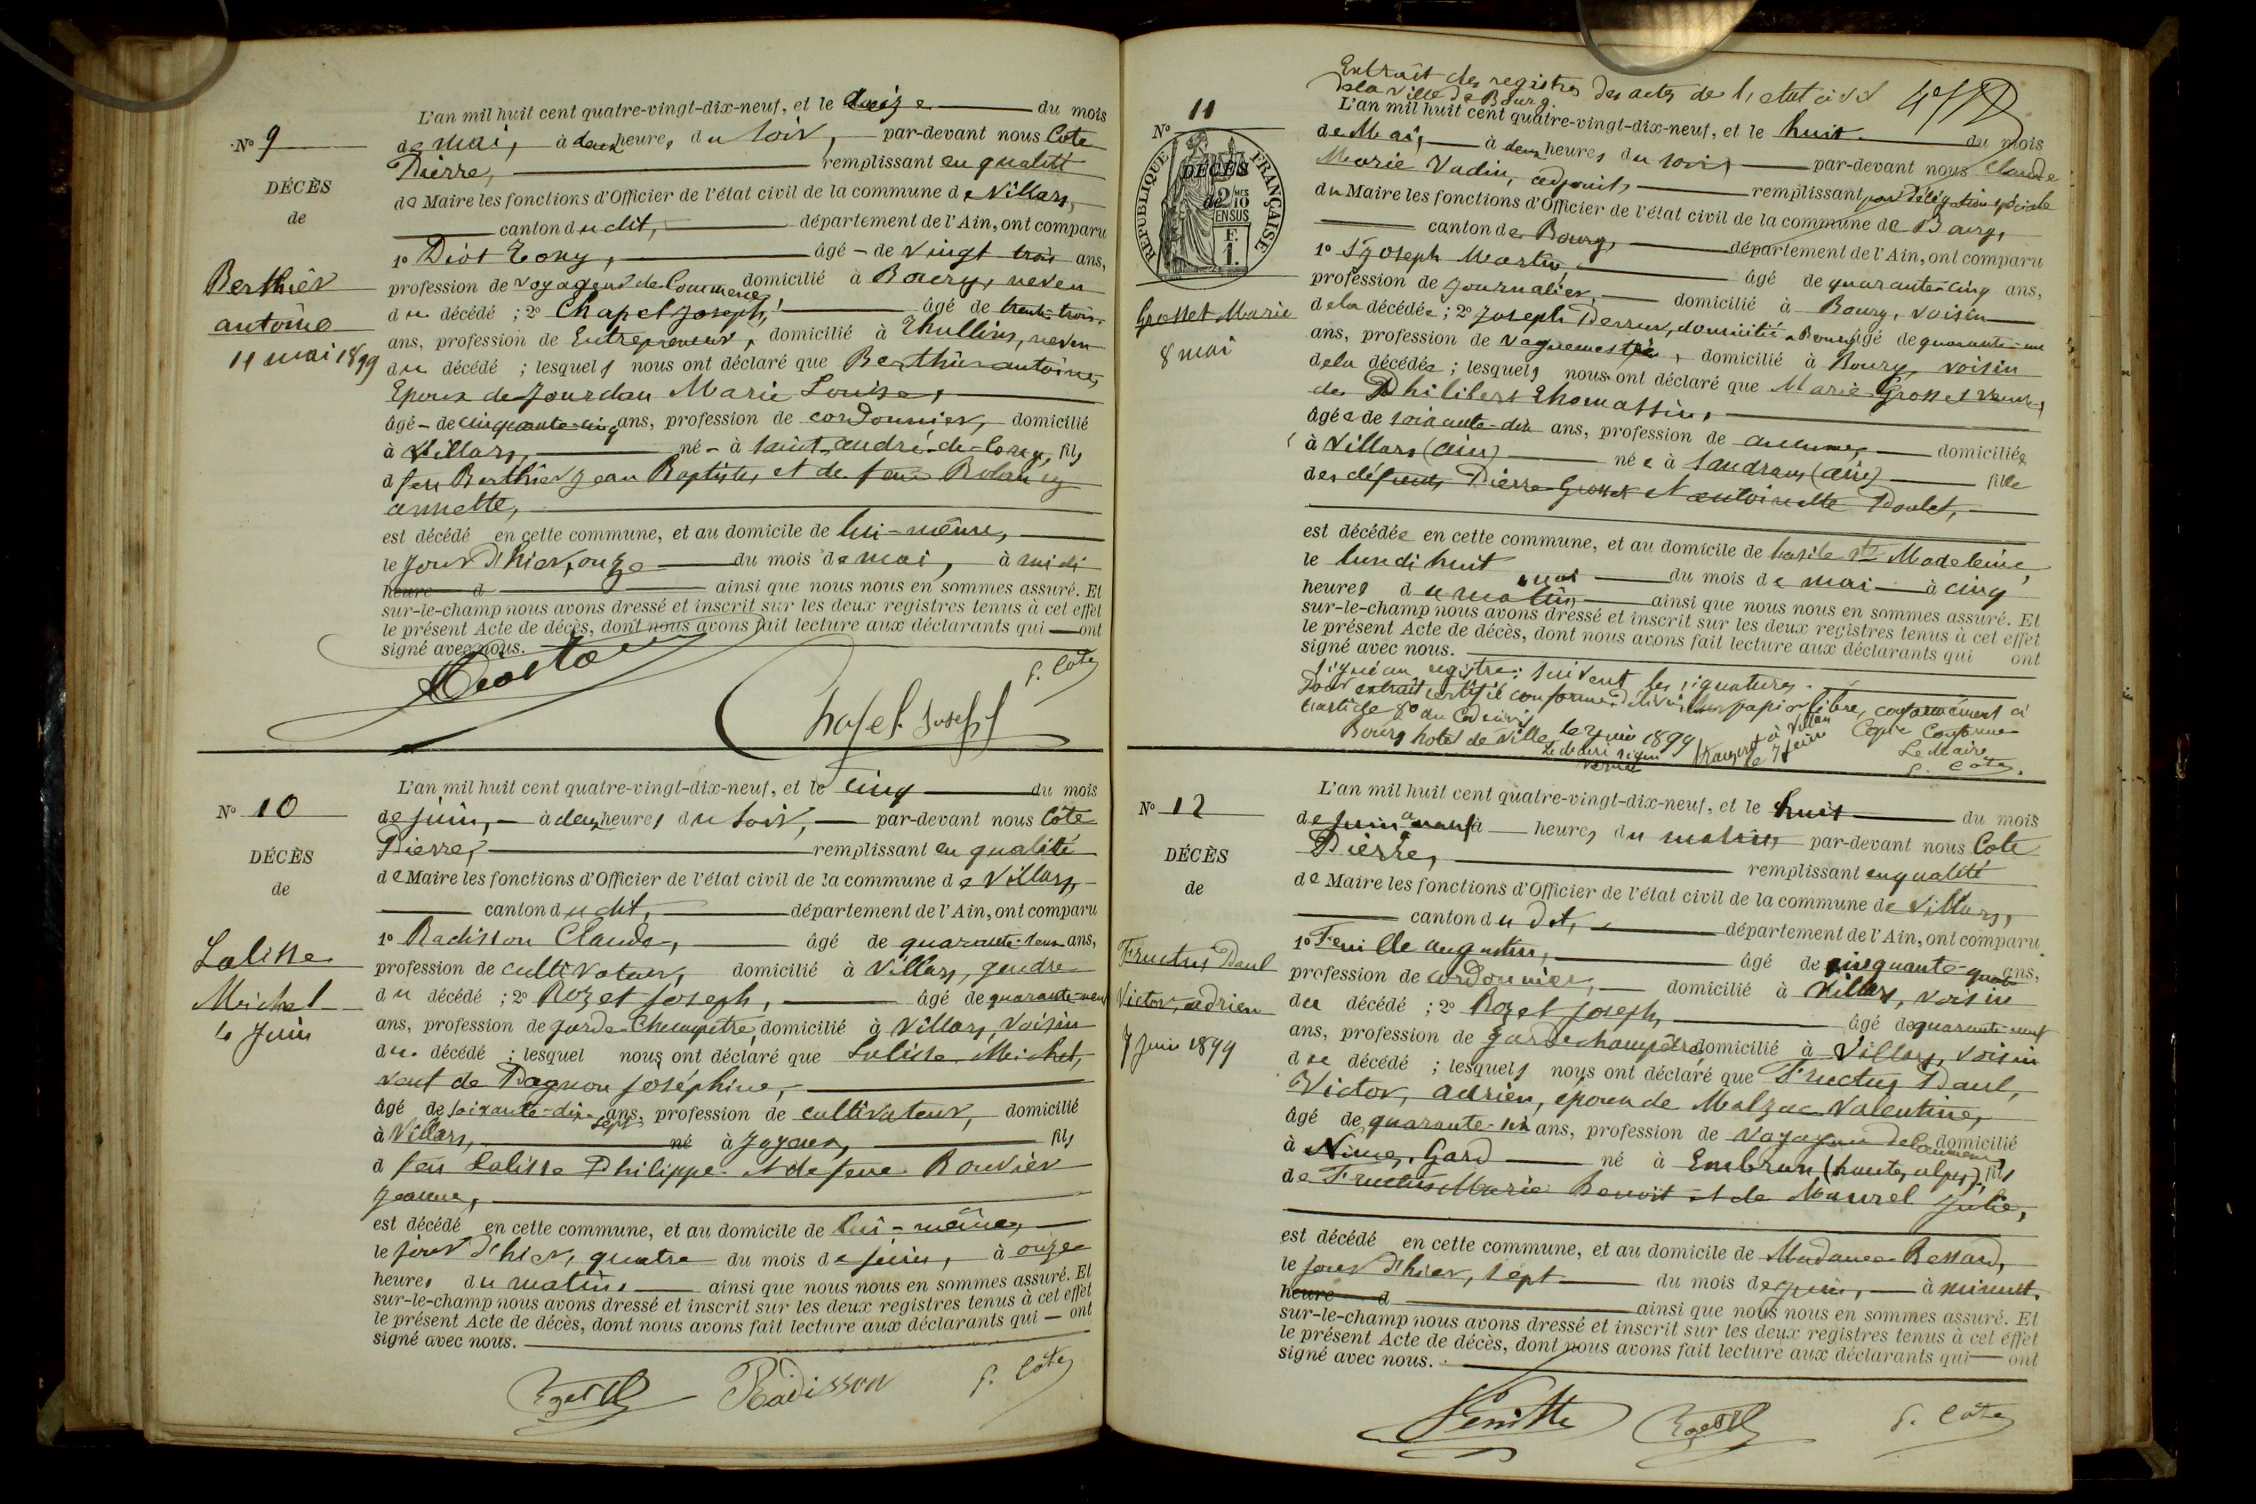 L'an mil huit cent quatre-vingt-dix-neuf, et le douze du mois
N° 9
de mai, à deux heures du soir, par-devant nous Cote
Pierre, remplissant en qualité
DÉCÈS
de Maire les fonctions d'Officier de l'état civil de la commune de Villars,
de
canton dudit, département de l'Ain, ont comparu
1° Diot Tony, âgé de vingt trois ans,
Berthier
profession de voyageur de Commerce, domicilié à Bourg, neveu
antoine
du décédé ; 2° Chapel Joseph, âgé de trente-trois
11 mai 1899
ans, profession de Entrepreneur, domicilié à Thullins, neveu
du décédé ; lesquels nous ont déclaré que Berthier antoine,
Epoux de Jourdan Marie Louise,
âgé de cinquante-cinq ans, profession de cordonnier, domicilié
à Villars, né à saint-andré-de-Corcy, fils
d feu Berthier Jean Baptiste, et de feue
annette,
est décédé en cette commune, et au domicile de lui-même,
le jour d'hier, onze du mois de mai, à midi
heure d ainsi que nous nous en sommes assuré. Et
sur-le-champ nous avons dressé et inscrit sur les deux registres tenus à cet effet
le présent Acte de décès, dont nous avons fait lecture aux déclarants qui ont
signé avec nous.
P. Cote
Chapel Joseph
L'an mil huit cent quatre-vingt-dix-neuf, et le cinq du mois
N° 10
de juin, à deux heures du soir, par-devant nous Côte
Pierre, remplissant en qualité
DÉCÈS
de Maire les fonctions d'Officier de l'état civil de la commune de Villars,
de
canton dudit, département de l'Ain, ont comparu
1° Radisson Claude, âgé de quarante-deux ans,
Lalisse
profession de cultivateur, domicilié à Villars, gendre
Michel
du décédé ; 2° Rozet Joseph, âgé de quarante-neuf
4 Juin
ans, profession de garde Champêtre, domicilié à Villars, voisin
du décédé ; lesquel nous ont déclaré que Lalisse Michel,
veuf de Pagnon Joséphine,
âgé de soixante-dix-sept ans, profession de cultivateur, domicilié
à Villars, né à Joyeux, fils
d feu Lalisse Philippe et de feue Bouvier
Jeanne,
est décédé en cette commune, et au domicile de lui-même,
le jour d'hier, quatre du mois de juin, à onze
heures du matin, ainsi que nous nous en sommes assuré. Et
sur-le-champ nous avons dressé et inscrit sur les deux registres tenus à cet effet
le présent Acte de décès, dont nous avons fait lecture aux déclarants qui ont
signé avec nous.
Radisson
P. Côte
Extrait des registres des actes de l'état civil
de la Ville de Bourg.
N° 11
L'an mil huit cent quatre-vingt-dix-neuf, et le huit du mois
de Mai, à deux heures du soir, par-devant nous Claude
Marie Vadin, adjoint, remplissant par délégation spéciale
RÉPUBLIQUE FRANÇAISE
DÉCÈS
2/10
MES
EN SUS
de
F.
1.
du Maire les fonctions d'Officier de l'état civil de la commune de Bourg,
canton de Bourg, département de l'Ain, ont comparu
1° St Joseph Martin, âgé de quarante-cinq ans,
profession de journalier, domicilié à Bourg, voisin
Grosset Marie
de la décédée ; 2° Joseph Perrux, domicilié à Bourg âgé de quarante-un
8 mai
ans, profession de vaguemestre, domicilié à Bourg, voisin
de la décédée ; lesquels nous ont déclaré que Marie Grosset veuve
de Philibert Thomassin,
âgée de soixante-dix ans, profession de aucune, domiciliée
à Villars (ain) née à Sandrans (ain) fille
des défunts Pierre Grosset et antoinette Poulet,
est décédée en cette commune, et au domicile de l'asile Ste Madeleine,
le lundi huit mai du mois de mai à cinq
heures du matin, ainsi que nous nous en sommes assuré. Et
sur-le-champ nous avons dressé et inscrit sur les deux registres tenus à cet effet
le présent Acte de décès, dont nous avons fait lecture aux déclarants qui ont
signé avec nous.
signé au registre : suivent les signatures.
Pour extrait certifié conforme, délivré sur papier libre, conformément à
l'article 80 du Code civil
Bourg hotel de Ville, le 2 juin 1899
Transcrit à Villars
le 7 juin
Copie Conforme
Le Maire
P. Côte.
L'an mil huit cent quatre-vingt-dix-neuf, et le huit du mois
N° 12
de Juin à neuf heures du matin, par-devant nous Cote
Pierre, remplissant en qualité
DÉCÈS
de Maire les fonctions d'Officier de l'état civil de la commune de Villars,
de
canton du dit, département de l'Ain, ont comparu
1° Feuille augustin, âgé de cinquante-quatre ans,
Fructus Paul
profession de cordonnier, domicilié à Villars, voisin
Victor, adrien
du décédé ; 2° Rozet Joseph, âgé de quarante-neuf
7 Juin 1899
ans, profession de garde champêtre domicilié à Villars, voisin
du décédé ; lesquels nous ont déclaré que Fructus Paul,
Victor, adrien, époux de Malzac Valentine,
âgé de quarante-six ans, profession de voyageur de Commerce domicilié
à Nimes, Gard né à Embrun (hautes alpes), fils
de Fructus Marie Benoit et de Maurel Julie,
est décédé en cette commune, et au domicile de Madame Bessard,
le jour d'hier, sept du mois de juin, à minuit.
heure d ainsi que nous nous en sommes assuré. Et
sur-le-champ nous avons dressé et inscrit sur les deux registres tenus à cet effet
le présent Acte de décès, dont nous avons fait lecture aux déclarants qui ont
signé avec nous.
P. Côte